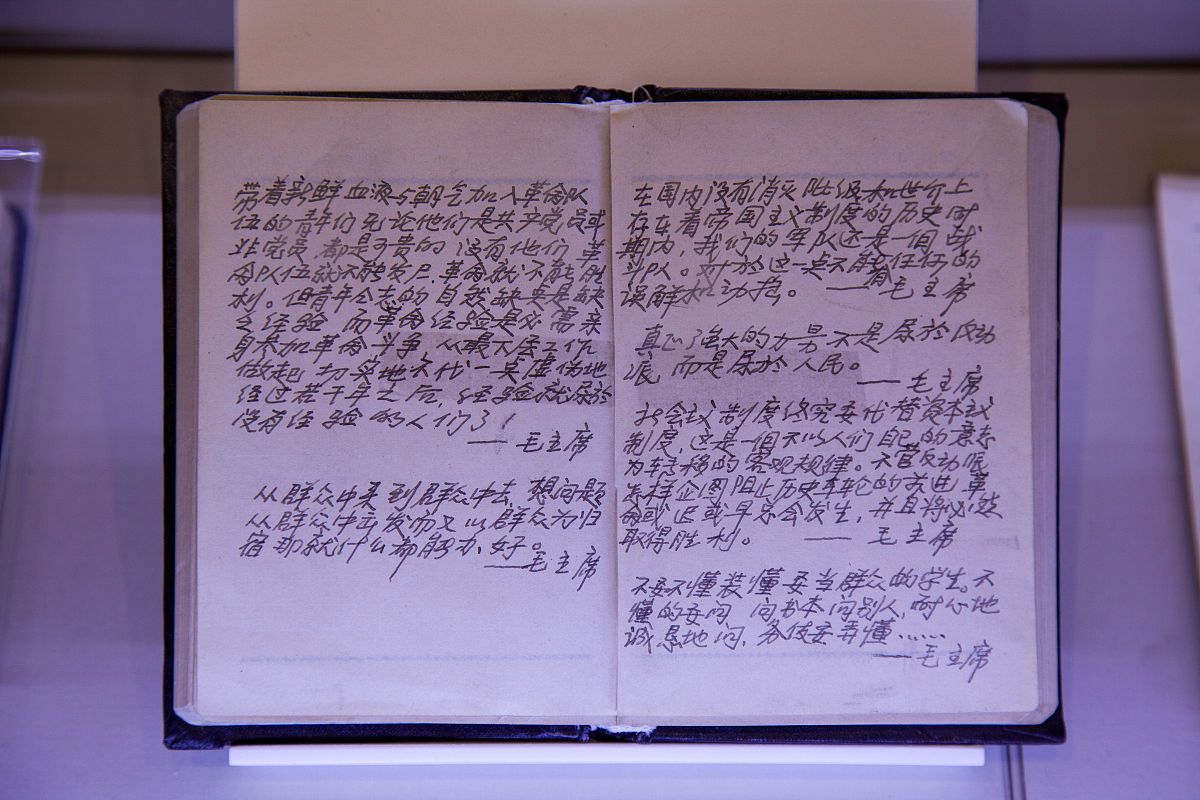 带着新鲜血液与朝气加入革命队
伍的青年们无论他们是共产党员或
非党员 都是可贵的 没有他们 革
命队伍就不能发展 革命就不能胜
利。但青年同志的自然缺点是缺
乏经验 而革命经验是必需亲
身参加革命斗争,从最下层工作
做起,切实地不代一点虚伪地
经过若干年之后,经验就属於
没有经验的人们了!
——毛主席
从群众中来到群众中去,想问题
从群众中出发而又以群众为归
宿那就什么都能办好。
——毛主席
在国内没有消灭阶级和世界上
存在着帝国主义制度的历史时
期内,我们的军队还是一个战
斗队。对於这一点不能有任何的
误解和动摇。 ——毛主席
真正强大的力量不是属於反动
派,而是属於人民。
——毛主席
社会主义制度终究要代替资本主义
制度,这是一个不以人们自己的意志
为转移的客观规律。不管反动派
怎样企图阻止历史车轮的前进,革
命或迟或早总会发生,并且将必然
取得胜利。 —— 毛主席
不要不懂装懂要当群众的学生。不
懂的要问,向书本问别人,耐心地
诚恳地问,务使要弄懂……
——毛主席